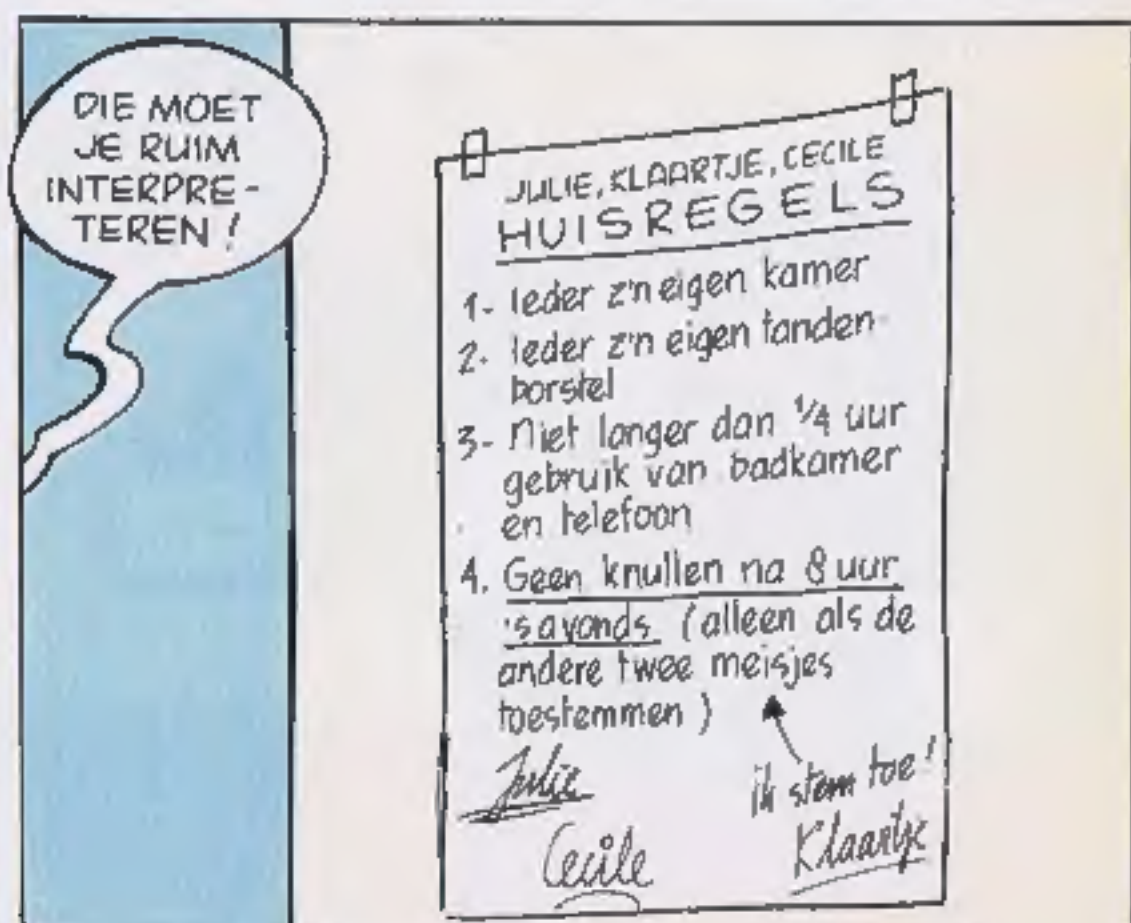 DIE MOET
JE RUIM
INTERPRE-
TEREN!
JULIE, KLAARTJE, CECILE
HUISREGELS
1- Ieder z'n eigen kamer
2- Ieder z'n eigen tanden-
borstel
3- Niet langer dan 1/4 uur
gebruik van badkamer
en telefoon
4. Geen knullen na 8 uur
's avonds (alleen als de
andere twee meisjes
toestemmen)
ik stem toe!
Julie
Cecile
Klaartje